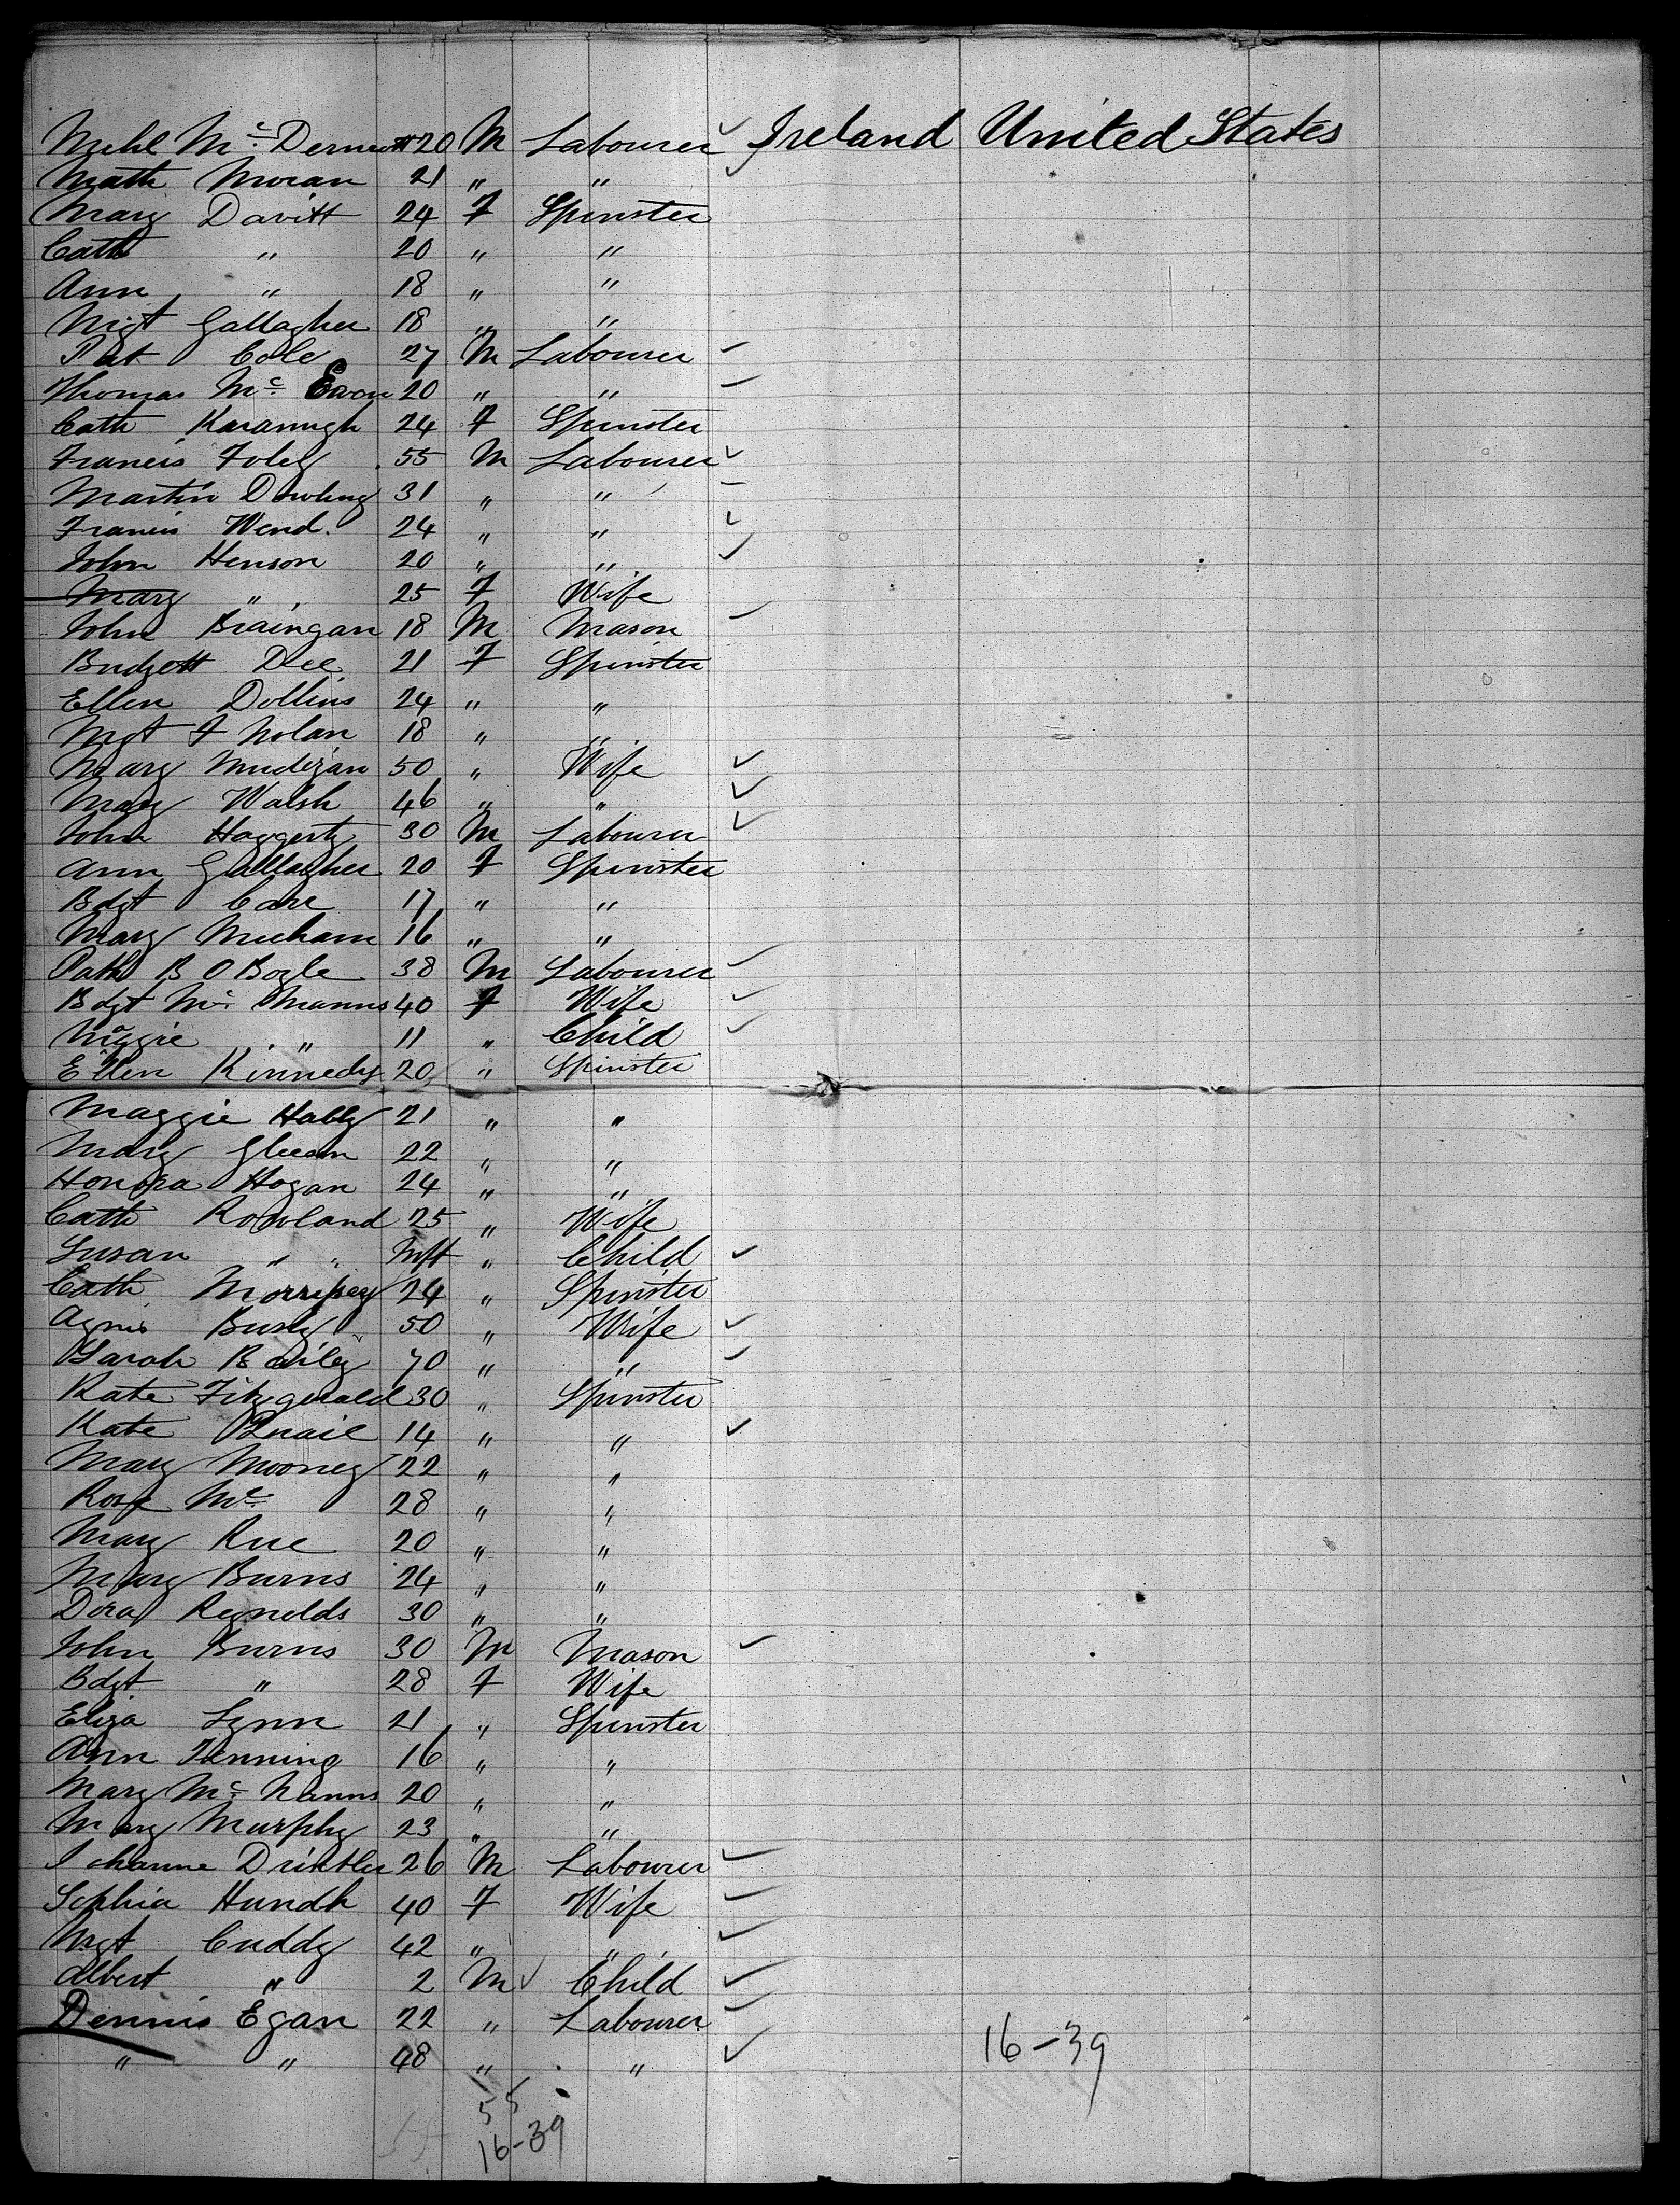 Michl Mc Dermott 20 M Labourer ✓ Ireland United States
Math Moran 21 " " ✓
Mary Davitt 24 F Spinster
Cath " 20 " "
Ann " 18 " "
Mgt Gallagher 18 " "
Pat Cole 27 M Labourer ✓
Thomas Mc Ewon 20 " " ✓
Cath Kavanugh 24 F Spinster
Francis Foley 55 M Labourer ✓
Martin Dowling 31 " " ✓
Francis Wend. 24 " " ✓
John Henson 20 " " ✓
Mary " 25 F Wife
John Braingan 18 M Mason ✓
Budgett Dee 21 F Spinster
Ellen Dollins 24 " "
Mgt F Nolan 18 " "
Mary Mudigan 50 " Wife ✓
Mary Walsh 46 " " ✓
John Haggerty 30 M Labourer ✓
Ann Gallagher 20 F Spinster
Bdgt Carr 17 " "
Mary Meeham 16 " "
Path B O Bogle 38 M Labourer ✓
Bdgt Mc Manns 40 F Wife ✓
Maggie " 11 " Child ✓
Ellen Kinnedy 20 " Spinster
Maggie Hally 21 " "
Mary Gleeson 22 " "
Honora Hogan 24 " "
Cath Rowland 25 " Wife
Susan " " Inft " Child ✓
Cath Morrissey 24 " Spinster
Agnes Busly 50 " Wife ✓
Sarah Baily 70 " " ✓
Kate Fitzgerald 30 " Spinster
Kate 14 " " ✓
Mary Mooney 22 " "
Rose Mc 28 " "
Mary Rue 20 " "
Mary Burns 24 " "
Dora Reynolds 30 " "
John Burns 30 M Mason ✓
Bdgt " 28 F Wife
Eliza Lynn 21 " Spinster
Ann Fenning 16 " "
Mary Mc Nanns 20 " "
Mary Murphy 23 " "
Johanne 26 M Labourer ✓
Sophia Hundh 40 F Wife ✓
Mgt Cuddy 42 " " ✓
Albert " 2 M ✓ Child ✓
Dennis Egan 22 " Labourer ✓
" " 48 " " ✓ 16-39
55
16-39